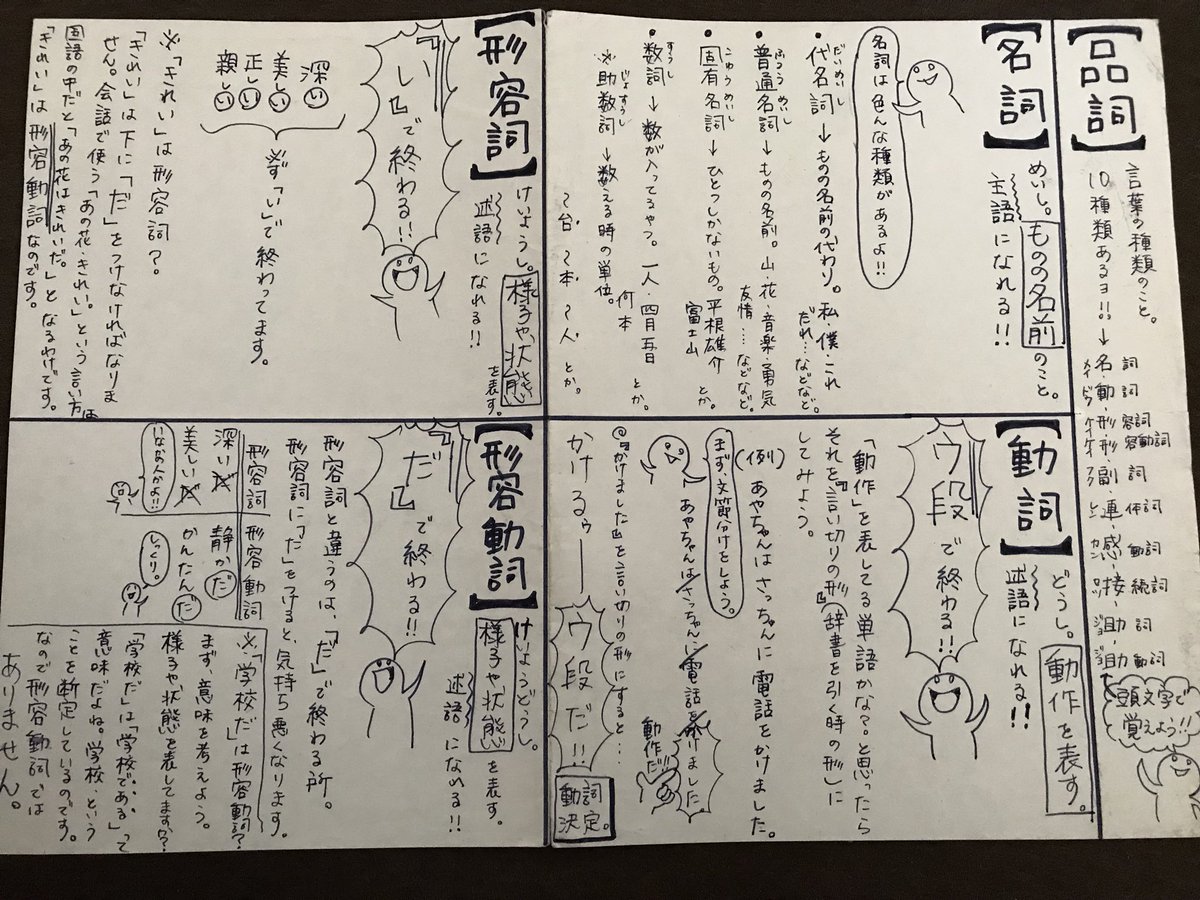 【品詞】
言葉の種類のこと。
10種類あるヨ!!→
名詞
動詞
形容詞
形容動詞
副詞
連体詞
感動詞
接続詞
助詞
助動詞
頭文字で
覚えよう!!
【名詞】
めいし。もの の名前のこと。
主語になれる!!
名詞は色んな種類があるよ!!
・代名詞→ものの名前の代わり。私・僕・これ
だいめいし
だれ…などなど。
・普通名詞→ものの名前。山・花・音楽・勇気
ふつうめいし
友情…などなど。
・固有名詞→ひとつしかないもの。平根雄介
こゆうめいし
富士山 とか。
・数詞→数が入ってるやつ。一人・四月五日
すうし
何本 とか。
※助数詞→数える時の単位。
じょすうし
〜台、〜本、〜人 とか。
【動詞】
どうし。動作を表す。
述語になれる!!
『ウ段』で終わる!!
「動作」を表してる単語かな?と思ったら
それを『言い切りの形』(辞書を引く時の形)に
してみよう。
(例)あやちゃんはさっちゃんに電話をかけました。
まず、文節分けをしよう。
あやちゃんは/さっちゃんに/電話を/かけました。
動作だ!!
◎『かけました』を言い切りの形にすると…
かけるぅ――
ウ段だ!!
動詞
決定。
【形容詞】
けいようし。様子や、状態を表す。
述語になれる!!
『い』で終わる!!
深い
美しい
正しい
親しい
※必ず「い」で終わってます。
※「きれい」は形容詞?
「きれい」は下に「だ」をつけなければなりま
せん。会話で使う「あの花、きれい。」という言い方は
国語の中だと「あの花はきれいだ。」となるわけです。
「きれい」は形容動詞なのです。
【形容動詞】
けいようどうし。
様子や、状態を表す。
述語になれる!!
『だ』で終わる!!
形容詞と違うのは、「だ」で終わる所。
形容詞に「だ」をつけると、気持ち悪くなります。
形容詞
深いだ
美しいだ
いなか人かよ!!
形容動詞
静かだ
かんたんだ
しっくり。
※「学校だ」は形容動詞?
まず、意味を考えよう。
様子や状態を表してます?
「学校だ」は「学校である」って
意味だよね。学校、という
ことを断定しているのです。
なので形容動詞では
ありません。